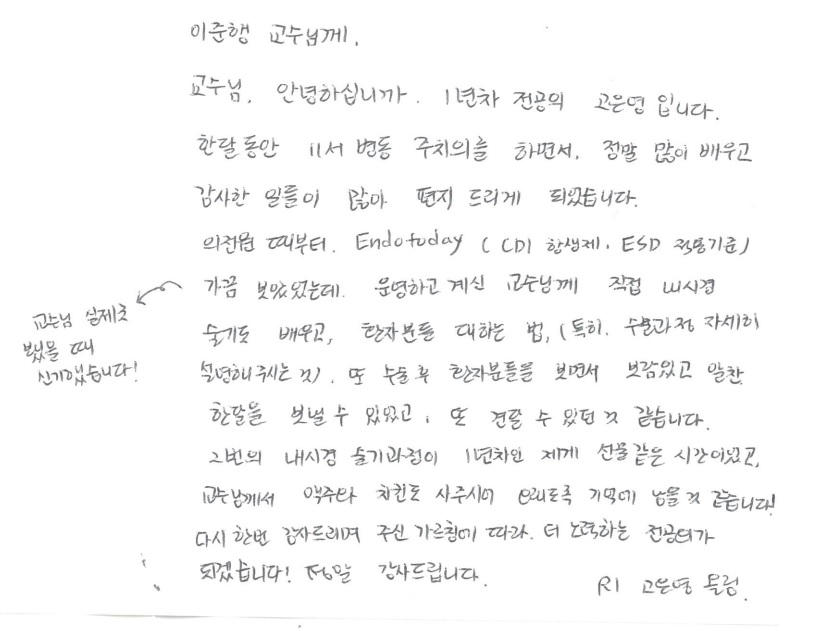 이준행 교수님께,
교수님, 안녕하십니까. 1년차 전공의 고은영 입니다.
한달동안 11서 병동 주치의를 하면서, 정말 많이 배우고
감사한 일들이 많아 편지 드리게 되었습니다.
의전원 때부터, Endotoday (CDI 항생제, ESD 적응기준)
가끔 보았었는데, 운영하고 계신 교수님께 직접 내시경
술기도 배우고, 환자분들 대하는 법, (특히, 수술과정 자세히
설명해주시는 것), 또 수술 후 환자분들을 보면서 보람있고 알찬
한달을 보낼 수 있었고, 또 견딜 수 있던 것 같습니다.
2번의 내시경 술기과정이 1년차인 제게 선물같은 시간이었고,
교수님께서 맥주와 치킨도 사주시어 오래도록 기억에 남을 것 같습니다!
다시 한번 감사드리며 주신 가르침에 따라, 더 노력하는 전공의가
되겠습니다! 정말 감사드립니다.
R1 고은영 올림.
교수님 실제로
뵀을 때
신기했습니다!